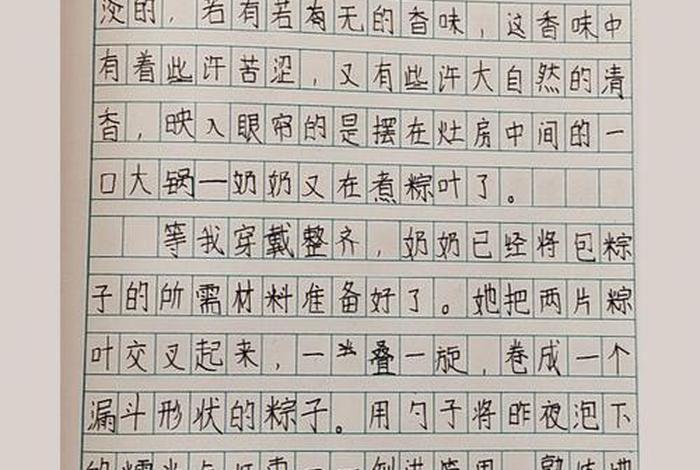 淡的，若有若有无的香味，这香味中
有着些许苦涩，又有些许大自然的清
香，映入眼帘的是摆在灶房中间的一
口大锅一奶奶又在煮粽叶了。
等我穿戴整齐，奶奶已经将包粽
子的所需材料准备好了。她把两片粽
叶交叉起来，一叠一旋，卷成一个
漏斗形状的粽子。用勺子将昨夜泡下
的糯米